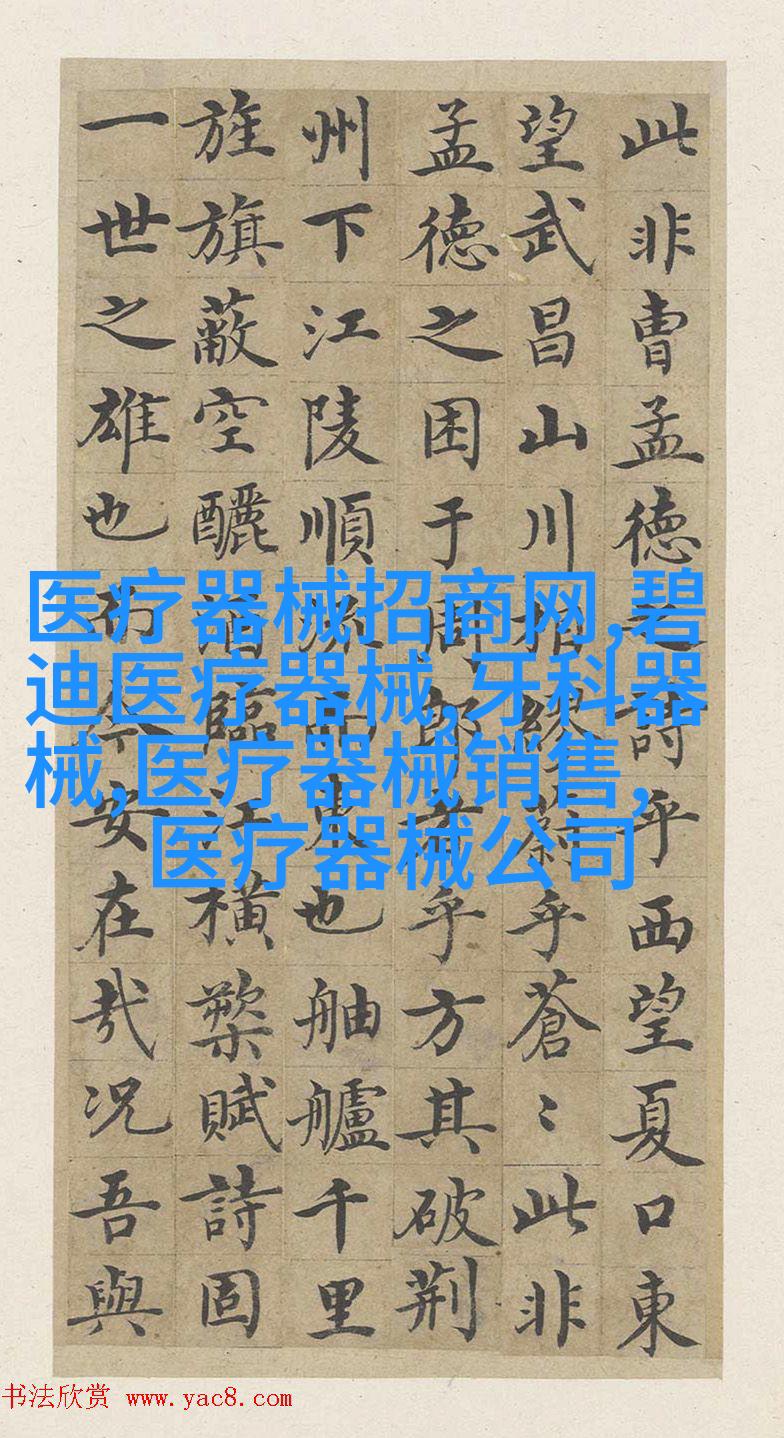 此非曹孟德之詩乎西望夏口東
望武昌山川相繆蔚乎蒼〻此非
孟德之困于周郎者乎方其破荊
州下江陵順流而東也舳艫千里
旌旗蔽空釃酒臨江橫槊賦詩固
一世之雄也而今安在哉况吾與
医疗器械招商网,碧
迪医疗器械,牙科器
械,医疗器械销售,
医疗器械公司
书法欣赏 www.yac8.com